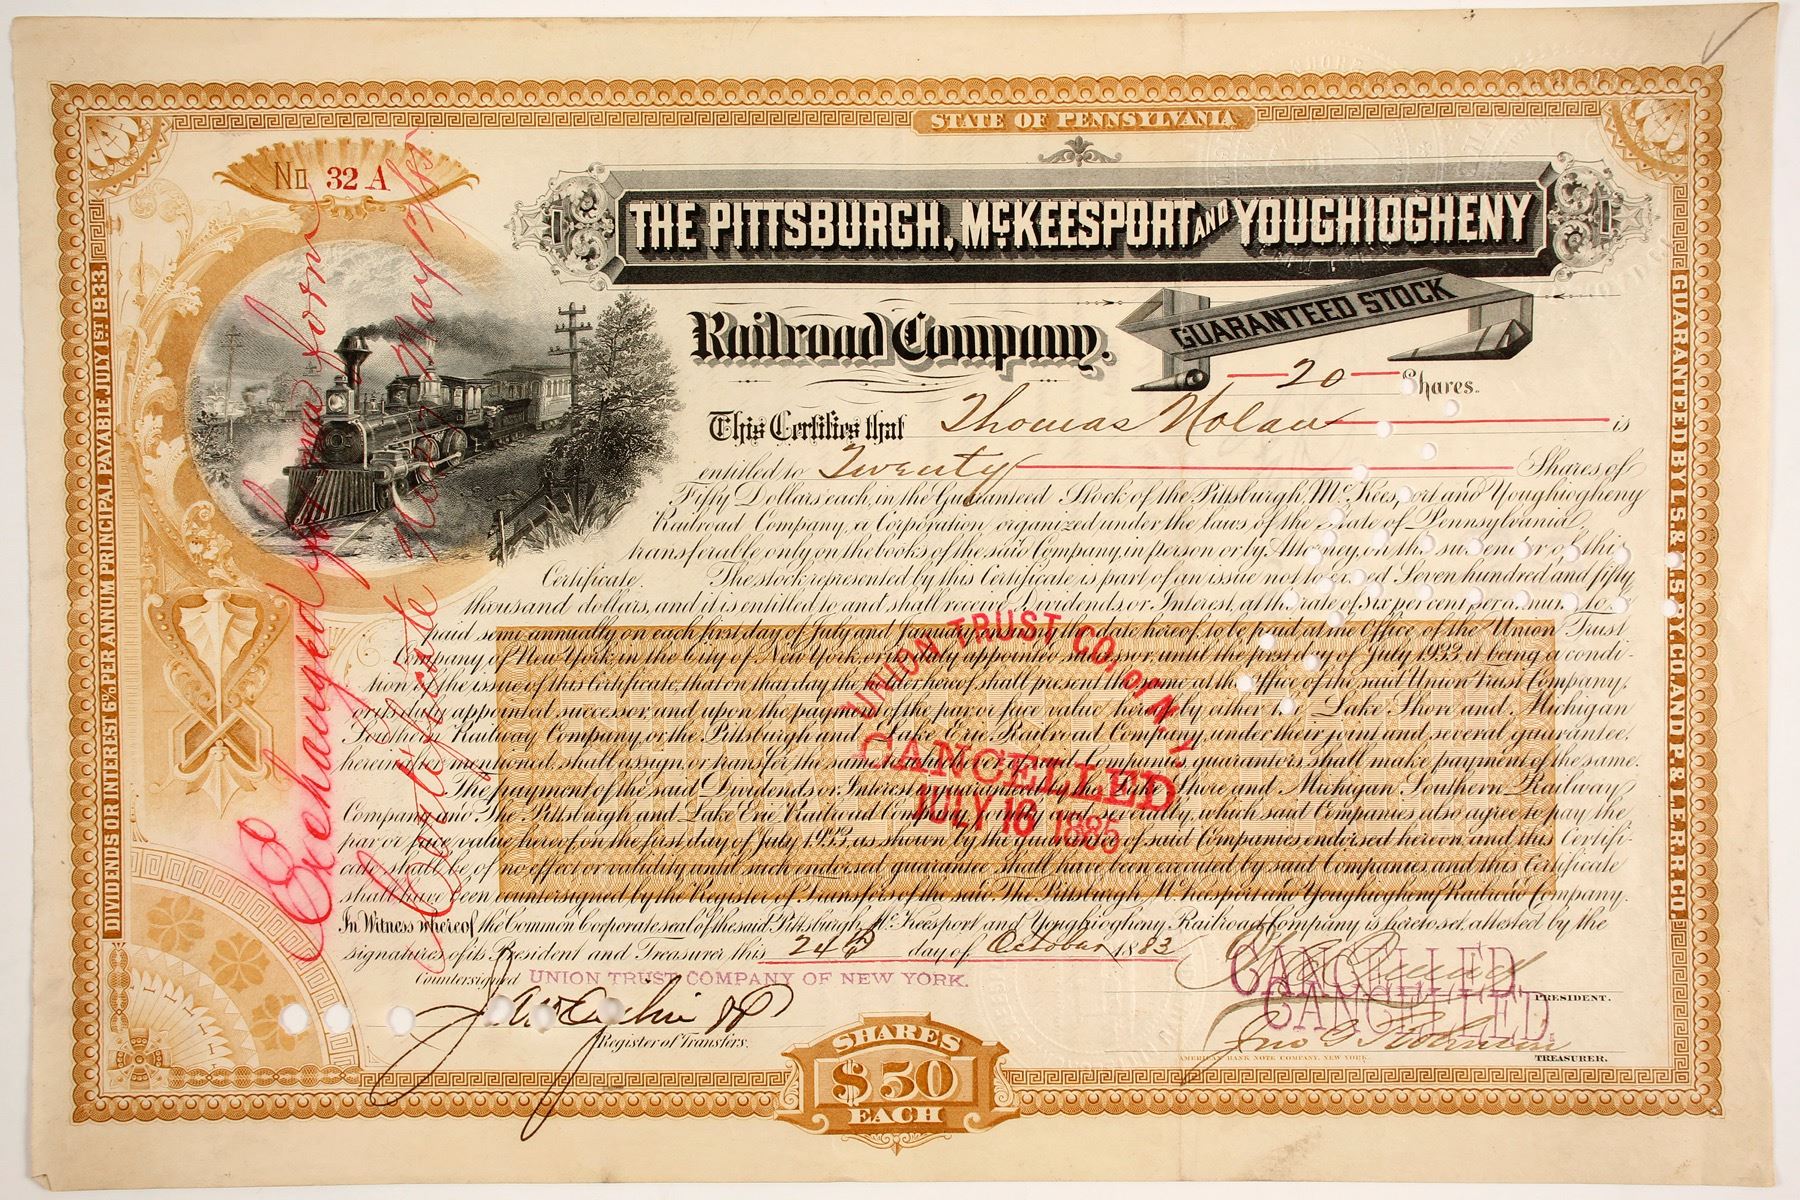 STATE OF PENNSYLVANIA
No 32 A
THE PITTSBURGH, McKEESPORT AND YOUGHIOGHENY
Railroad Company.
GUARANTEED STOCK
20 Shares.
This Certifies that Thomas Nolan is
entitled to Twenty Shares of
Fifty Dollars each, in the Guaranteed Stock of the Pittsburgh, McKeesport and Youghiogheny
Railroad Company, a Corporation organized under the laws of the State of Pennsylvania,
transferable only on the books of the said Company, in person or by Attorney, on the surrender of this
Certificate. The stock represented by this Certificate is part of an issue not to exceed Seven hundred and fifty
thousand dollars, and it is entitled to and shall receive Dividends or Interest, at the rate of Six per cent per annum, to be
paid semi-annually on each first day of July and January, ensuing the date hereof, to be paid at the Office of the Union Trust
Company of New York, in the City of New York, or its duly appointed successor, until the first day of July 1933, it being a condi-
tion of the issue of this Certificate, that on that day the holder hereof shall present the same at the Office of the said Union Trust Company,
or its duly appointed successor, and upon the payment of the par or face value hereof by either the Lake Shore and Michigan
Southern Railway Company, or the Pittsburgh and Lake Erie Railroad Company, under their joint and several guarantee,
hereinafter mentioned, shall assign, or transfer the same to whichever of said Companies guarantors, shall make payment of the same.
The payment of the said Dividends or Interest is guaranteed by the Lake Shore and Michigan Southern Railway
Company and The Pittsburgh and Lake Erie Railroad Company, jointly and severally, which said Companies also agree to pay the
par or face value hereof, on the first day of July 1933, as shown by the guarantee of said Companies endorsed hereon, and this Certifi-
cate shall be of no effect or validity until such endorsed guarantee shall have been executed by said Companies, and this Certificate
shall have been countersigned by the Register of Transfers of the said The Pittsburgh McKeesport and Youghiogheny Railroad Company.
In Witness whereof the Common Corporate seal of the said Pittsburgh, McKeesport and Youghiogheny Railroad Company is hereto set, attested by the
signatures of its President and Treasurer this 24th day of October 1883
Countersigned UNION TRUST COMPANY OF NEW YORK.
Register of Transfers.
PRESIDENT.
TREASURER.
AMERICAN BANK NOTE COMPANY, NEW YORK.
SHARES
$50
EACH
DIVIDENDS OR INTEREST 6% PER ANNUM PRINCIPAL PAYABLE JULY 1ST 1933.
GUARANTEED BY L.S. & M.S. RY. CO. AND P. & L.E. R.R. CO.
Exchanged for new form
Certificate
UNION TRUST CO. OF N.Y.
CANCELLED
JULY 16 1885
CANCELLED
CANCELLED.